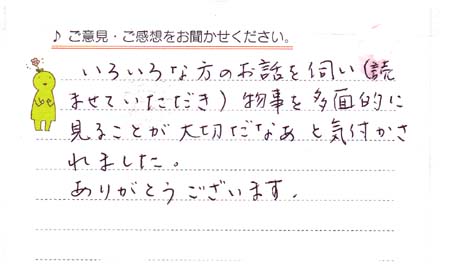 ♪ ご意見・ご感想をお聞かせください。
いろいろな方のお話を伺い(読
ませていただき)物事を多面的に
見ることが大切だなあと気付かさ
れました。
ありがとうございます.